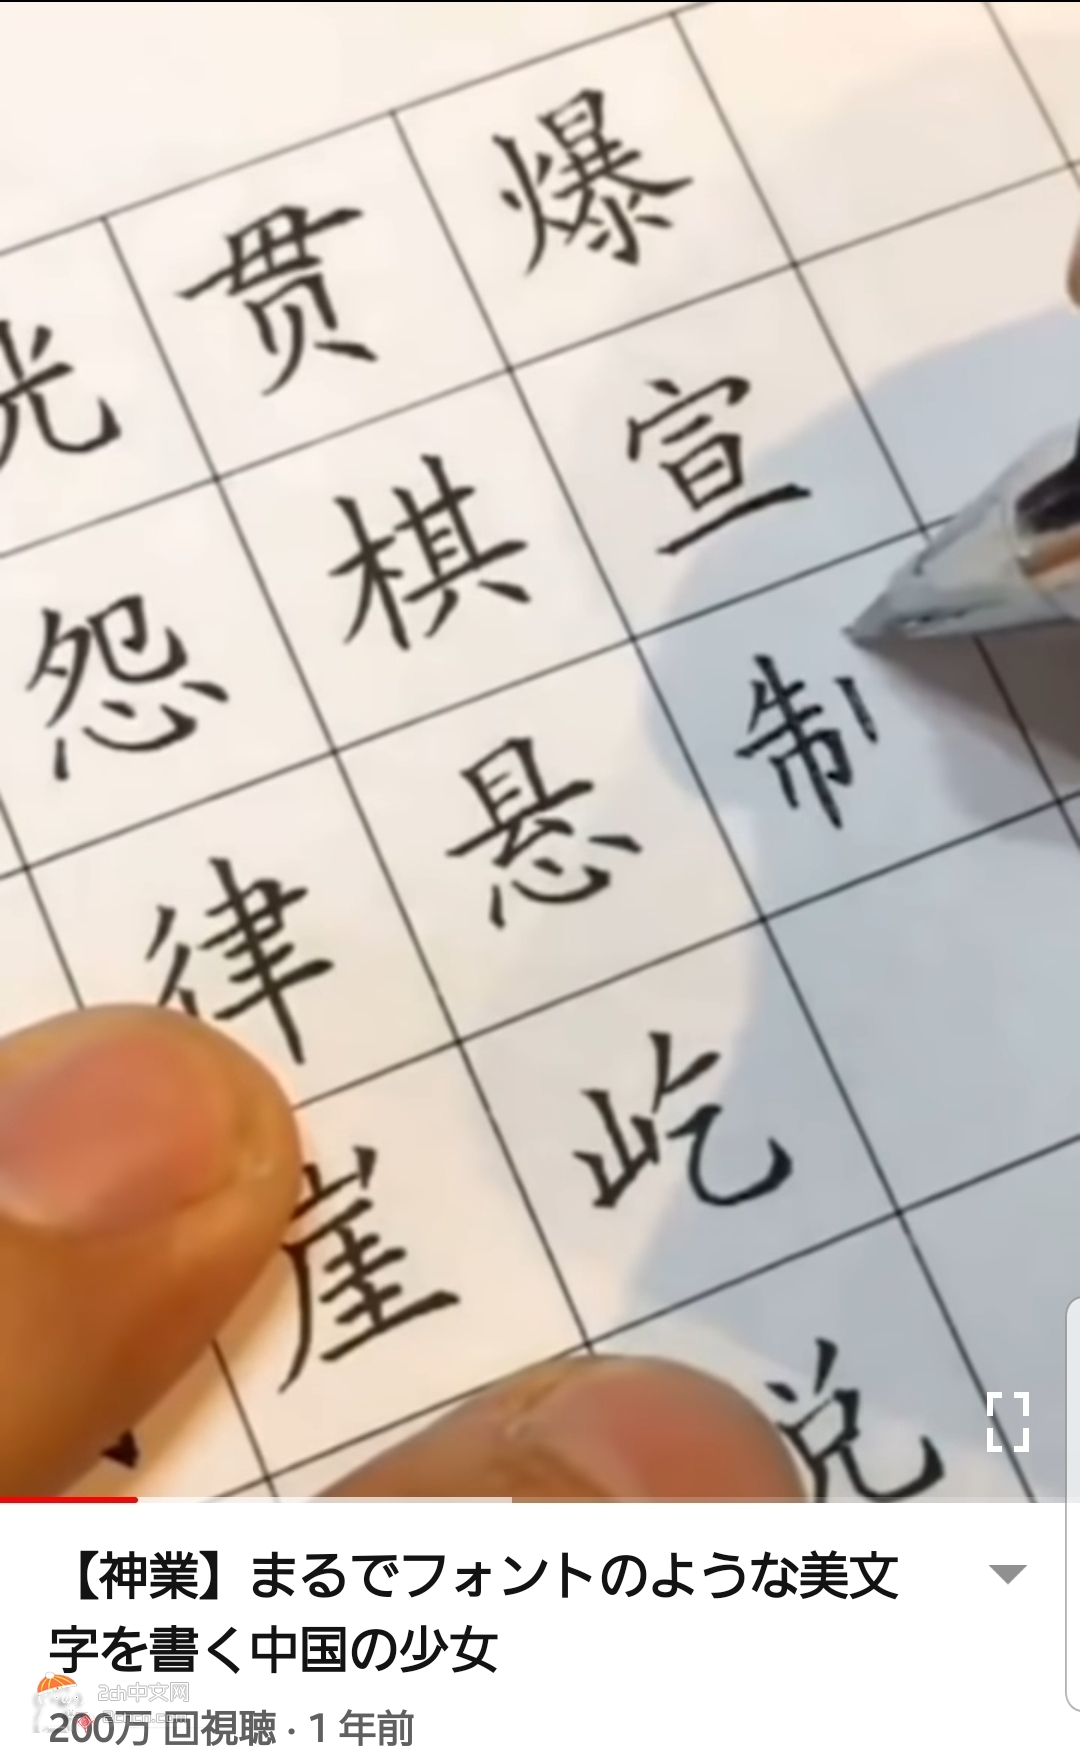 光 贯 爆
怨 棋 宣
律 悬 制
崖 屹
兑
【神業】まるでフォントのような美文
字を書く中国の少女
2ch中文网
2chcn.com
200万 回視聴 · 1 年前